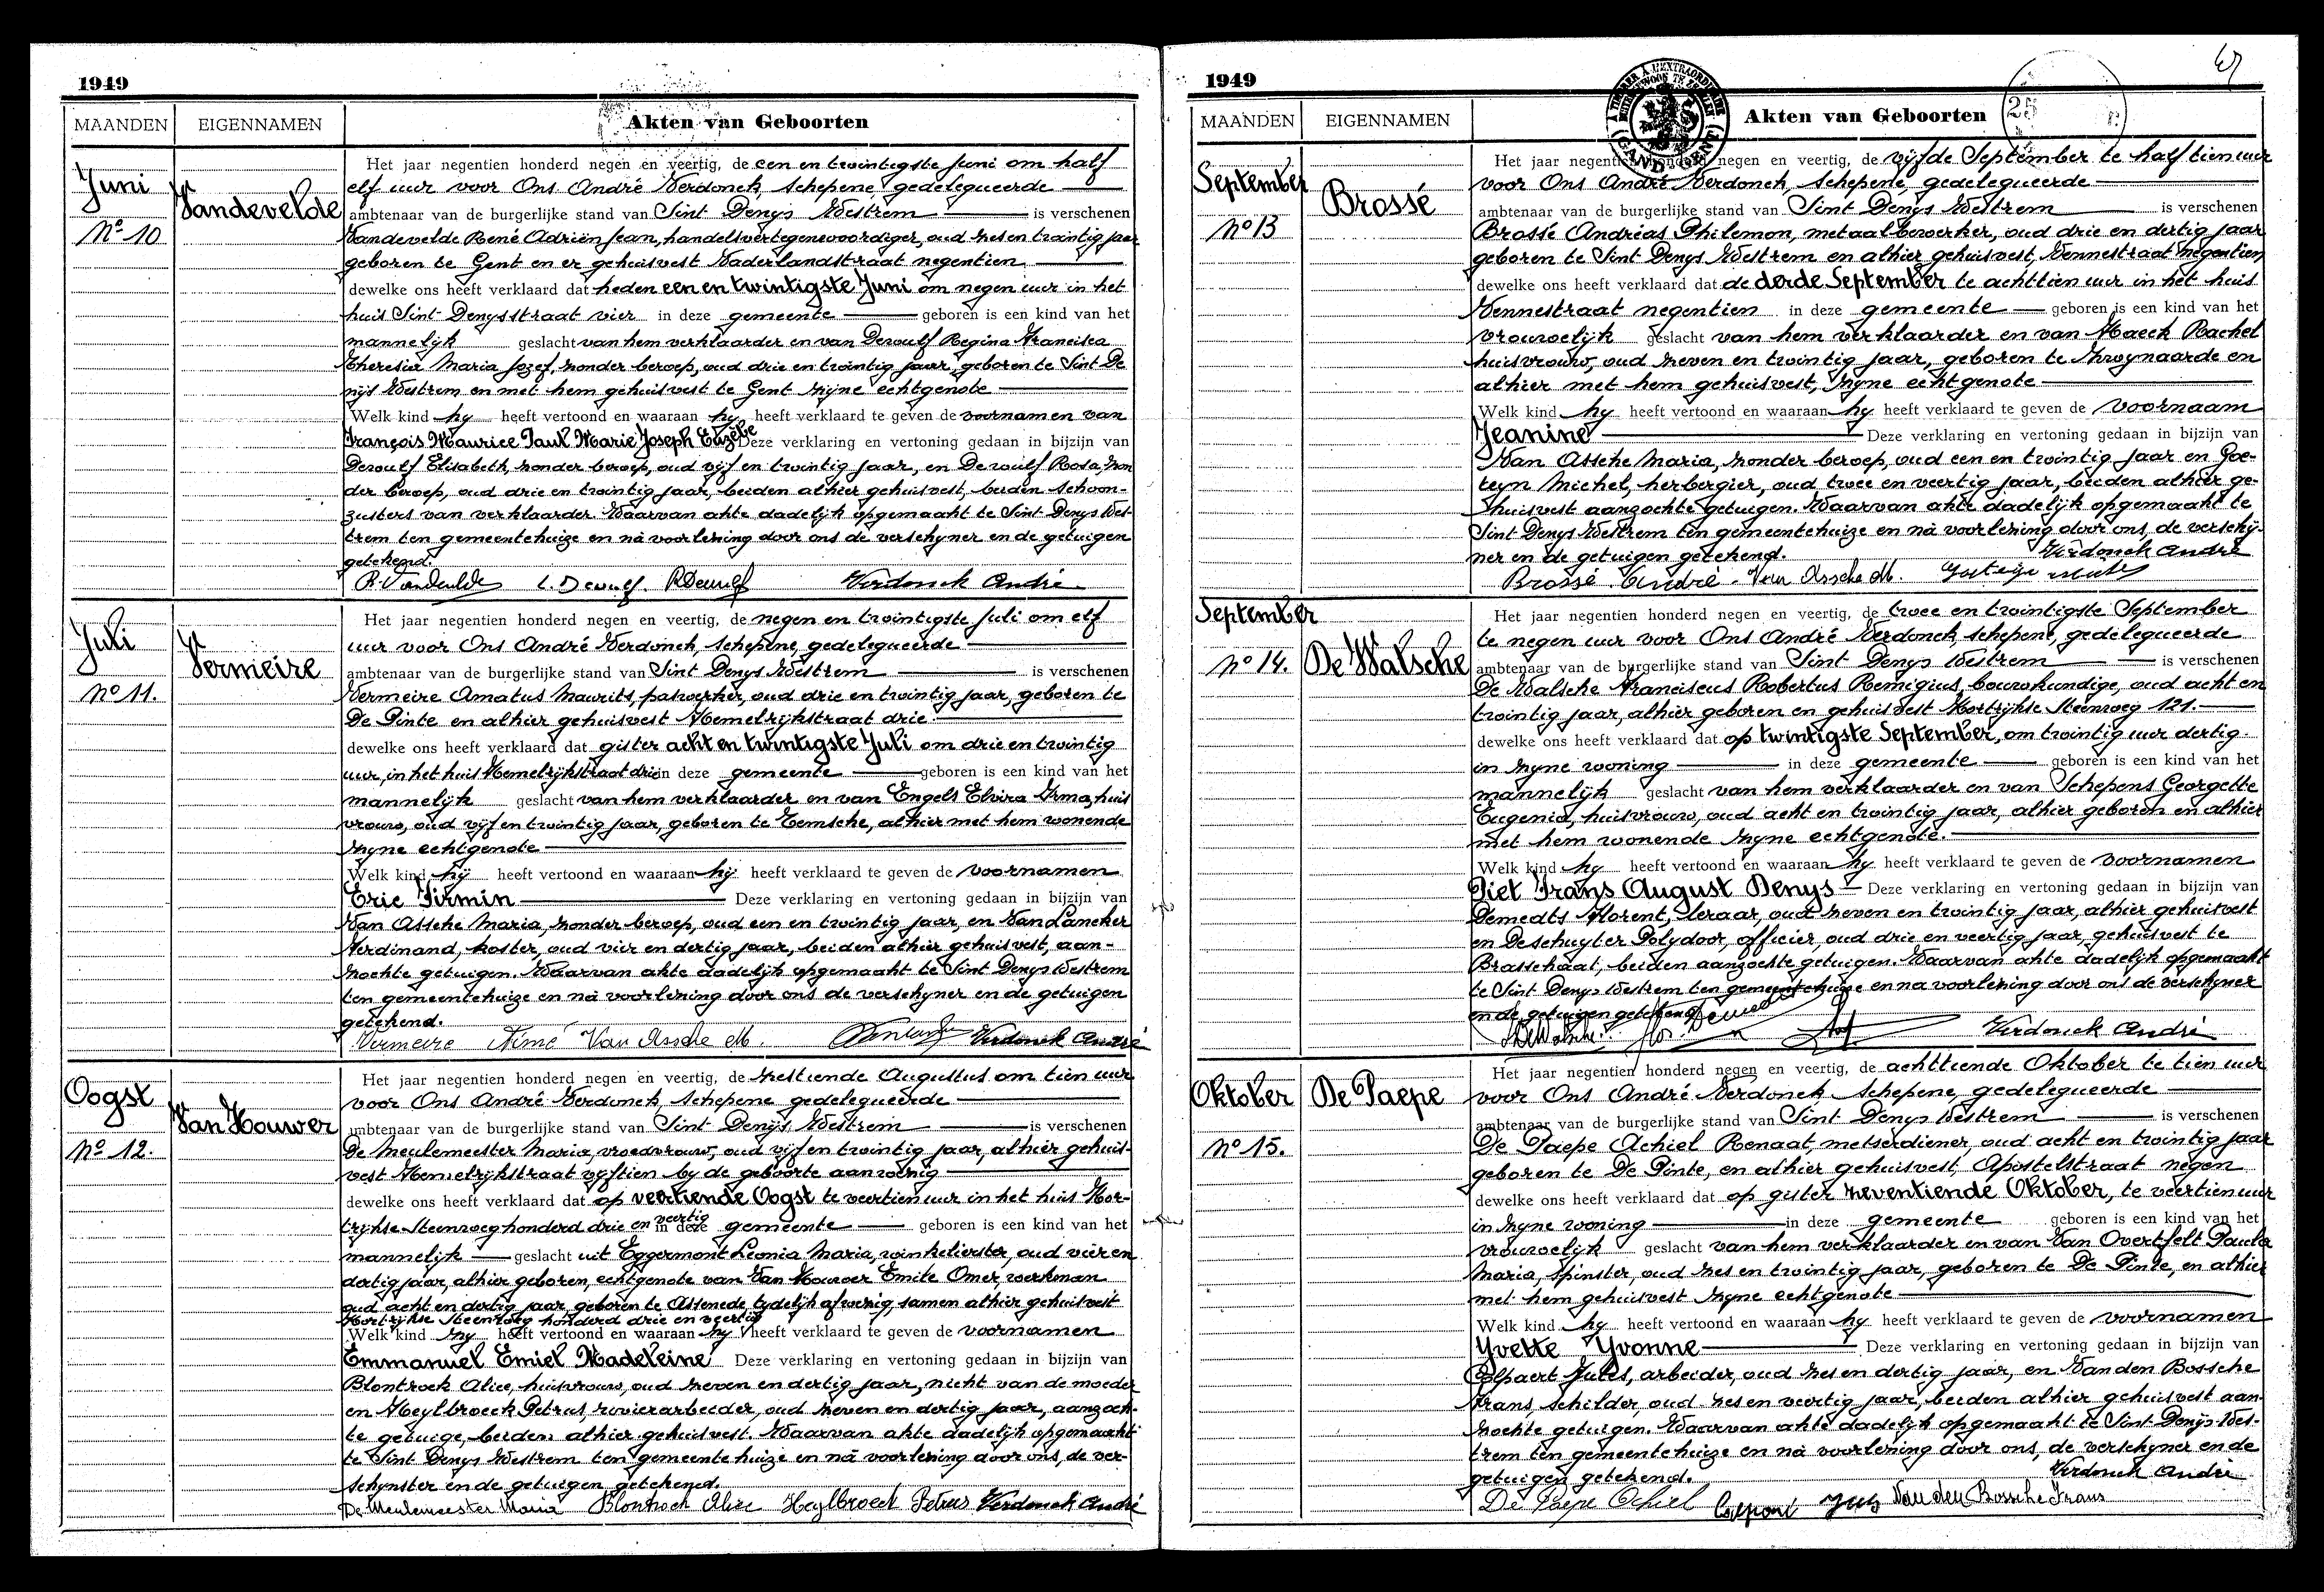 1949
MAANDEN EIGENNAMEN Akten van Geboorten
Juni
No 10
Vandevelde
Het jaar negentien honderd negen en veertig, de een en twintigste Juni om half
elf uur voor Ons André Verdonck, schepene gedelegueerde
ambtenaar van de burgerlijke stand van Sint Denys Westrem is verschenen
Vandevelde René Adriën Jean, handelsvertegenwoordiger, oud zes en twintig jaar
geboren te Gent en er gehuisvest Vaderlandstraat negentien
dewelke ons heeft verklaard dat heden een en twintigste Juni om negen uur in het
huis Sint Denysstraat vier in deze gemeente geboren is een kind van het
mannelijk geslacht van hem verklaarder en van Dewulf Regina Francisca
Theresia Maria Jozef, zonder beroep, oud drie en twintig jaar, geboren te Sint De
nijs Westrem en met hem gehuisvest te Gent zijne echtgenote
Welk kind hy heeft vertoond en waaraan hy heeft verklaard te geven de voornamen van
François Maurice Paul Marie Joseph Euzèbe Deze verklaring en vertoning gedaan in bijzijn van
Dewulf Elisabeth, zonder beroep, oud vijf en twintig jaar, en Dewulf Rosa, zon
der beroep, oud drie en twintig jaar, beiden alhier gehuisvest, beiden schoon-
zusters van verklaarder. Waarvan akte dadelijk opgemaakt te Sint Denys Wes-
trem ten gemeentehuize en nà voorlezing door ons de verschyner en de getuigen
getekend.
R. Vandevelde E. Dewulf. R Dewulf Verdonck André
Juli
No 11.
Vermeire
Het jaar negentien honderd negen en veertig, de negen en twintigste Juli om elf
uur voor Ons André Verdonck, schepene, gedelegueerde
ambtenaar van de burgerlijke stand van Sint Denys Westrem is verschenen
Vermeire Amatus Maurits, paswerker, oud drie en twintig jaar, geboren te
De Pinte en alhier gehuisvest Hemelrijkstraat drie.
dewelke ons heeft verklaard dat gister acht en twintigste Juli om drie en twintig
uur, in het huis Hemelrijkstraat drie in deze gemeente geboren is een kind van het
mannelijk geslacht van hem verklaarder en van Engels Elvira Irma, huis
vrouw, oud vijf en twintig jaar, geboren te Temsche, alhier met hem wonende
zyne echtgenote
Welk kind hij heeft vertoond en waaraan hij heeft verklaard te geven de voornamen
Eric Firmin Deze verklaring en vertoning gedaan in bijzijn van
Van Assche Maria, zonder beroep, oud een en twintig jaar, en Van Lancker
Ferdinand, koster, oud vier en dertig jaar, beiden alhier gehuisvest, aan-
zochte getuigen. Waarvan akte dadelijk opgemaakt te Sint Denys Westrem
ten gemeentehuize en nà voorlezing door ons de verschyner en de getuigen
getekend.
Vermeire Aimé Van Assche M. Verdonck André
Oogst
No 12.
Van Houwer
Het jaar negentien honderd negen en veertig, de zestiende Augustus om tien uur
voor Ons André Verdonck, schepene gedelegueerde
ambtenaar van de burgerlijke stand van Sint Denijs Westrem is verschenen
De Meulemeester Maria, vroedvrouw, oud vijf en twintig jaar, alhier gehuis-
vest Hemelrijkstraat vijftien by de geboorte aanwezig
dewelke ons heeft verklaard dat op veertiende Oogst te veertien uur in het huis Kor-
trijkse Steenweg honderd drie en veertig in deze gemeente geboren is een kind van het
mannelijk geslacht uit Eggermont Leonia Maria, winkelierster, oud vier en
dertig jaar, alhier geboren, echtgenote van Van Houwer Emile Omer, werkman
oud acht en dertig jaar, geboren te Assenede, tydelijk afwezig, samen alhier gehuisvest
Kortrijkse Steenweg honderd drie en veertig
Welk kind zy heeft vertoond en waaraan zy heeft verklaard te geven de voornamen
Emmanuel Emiel Madeleine Deze verklaring en vertoning gedaan in bijzijn van
Blontrock Alice, huisvrouw, oud zeven en dertig jaar, nicht van de moeder
en Heylbroeck Petrus, rovierarbeider, oud zeven en dertig jaar, aanzoch-
te getuige, beiden alhier gehuisvest. Waarvan akte dadelijk opgemaakt
te Sint Denys Westrem ten gemeentehuize en nà voorlezing door ons, de ver-
schynster en de getuigen getekend.
De Meulemeester Maria Blontrock Alice Heylbroeck Petrus Verdonck André
1949
25
MAANDEN EIGENNAMEN Akten van Geboorten
September
No 13
Brossé
Het jaar negentien honderd negen en veertig, de vijfde September te half tien uur
voor Ons André Verdonck, schepene, gedelegueerde
ambtenaar van de burgerlijke stand van Sint Denys Westrem is verschenen
Brossé Andréas Philemon, metaalbewerker, oud drie en dertig jaar
geboren te Sint Denys Westrem en alhier gehuisvest, Vennestraat negentien
dewelke ons heeft verklaard dat de derde September te achttien uur in het huis
Vennestraat negentien in deze gemeente geboren is een kind van het
vrouwelijk geslacht van hem verklaarder en van Haeck Rachel
huisvrouw, oud zeven en twintig jaar, geboren te Zwynaarde en
alhier met hem gehuisvest, zyne echtgenote
Welk kind hy heeft vertoond en waaraan hy heeft verklaard te geven de voornaam
Jeanine Deze verklaring en vertoning gedaan in bijzijn van
Van Assche Maria, zonder beroep, oud een en twintig jaar en Goe-
teyn Michel, herbergier, oud twee en veertig jaar, beiden alhier ge-
huisvest aanzochte getuigen. Waarvan akte dadelijk opgemaakt te
Sint Denys Westrem ten gemeentehuize en nà voorlezing door ons, de verschij-
ner en de getuigen getekend. Verdonck André
Brossé André. Van Assche M.
September
No 14.
De Walsche
Het jaar negentien honderd negen en veertig, de twee en twintigste September
te negen uur voor Ons André Verdonck, schepene, gedelegueerde
ambtenaar van de burgerlijke stand van Sint Denys Westrem is verschenen
De Walsche Franciscus Robertus Remigius, bouwkundige, oud acht en
twintig jaar, alhier geboren en gehuisvest Kortrijkse Steenweg 121.
dewelke ons heeft verklaard dat op twintigste September, om twintig uur dertig
in zyne woning in deze gemeente geboren is een kind van het
mannelijk geslacht van hem verklaarder en van Schepens Georgette
Eugenia, huisvrouw, oud acht en twintig jaar, alhier geboren en alhier
met hem wonende zyne echtgenote.
Welk kind hy heeft vertoond en waaraan hy heeft verklaard te geven de voornamen
Piet Frans August Denys Deze verklaring en vertoning gedaan in bijzijn van
Demedts Florent, leraar, oud zeven en twintig jaar, alhier gehuisvest
en Deschuyter Polydoor, officier, oud drie en veertig jaar, gehuisvest te
Brasschaat, beiden aanzochte getuigen. Waarvan akte dadelijk opgemaakt
te Sint Denys Westrem ten gemeentehuize en na voorlezing door ons de verschyner
en de getuigen getekend
Verdonck André
Oktober
No 15.
De Paepe
Het jaar negentien honderd negen en veertig, de achttiende Oktober te tien uur
voor Ons André Verdonck schepene, gedelegueerde
ambtenaar van de burgerlijke stand van Sint Denys Westrem is verschenen
De Paepe Achiel Renaat, metserdiener, oud acht en twintig jaar
geboren te De Pinte, en alhier gehuisvest, Apostelstraat negen
dewelke ons heeft verklaard dat op gister zeventiende Oktober, te veertien uur
in zyne woning in deze gemeente geboren is een kind van het
vrouwelijk geslacht van hem verklaarder en van Van Overtfelt Paula
Maria, spinster, oud zes en twintig jaar, geboren te De Pinte, en alhier
met hem gehuisvest zyne echtgenote
Welk kind hy heeft vertoond en waaraan hy heeft verklaard te geven de voornamen
Yvette Yvonne Deze verklaring en vertoning gedaan in bijzijn van
Colpaert Jules, arbeider, oud zes en dertig jaar, en Van den Bossche
Frans, schilder, oud zes en veertig jaar, beiden alhier gehuisvest aan-
zochte getuigen. Waarvan akte dadelijk opgemaakt te Sint Denijs Wes-
trem ten gemeentehuize en nà voorlezing door ons, de verschyner en de
getuigen getekend. Verdonck André
De Paepe Achiel Van den Bossche Frans